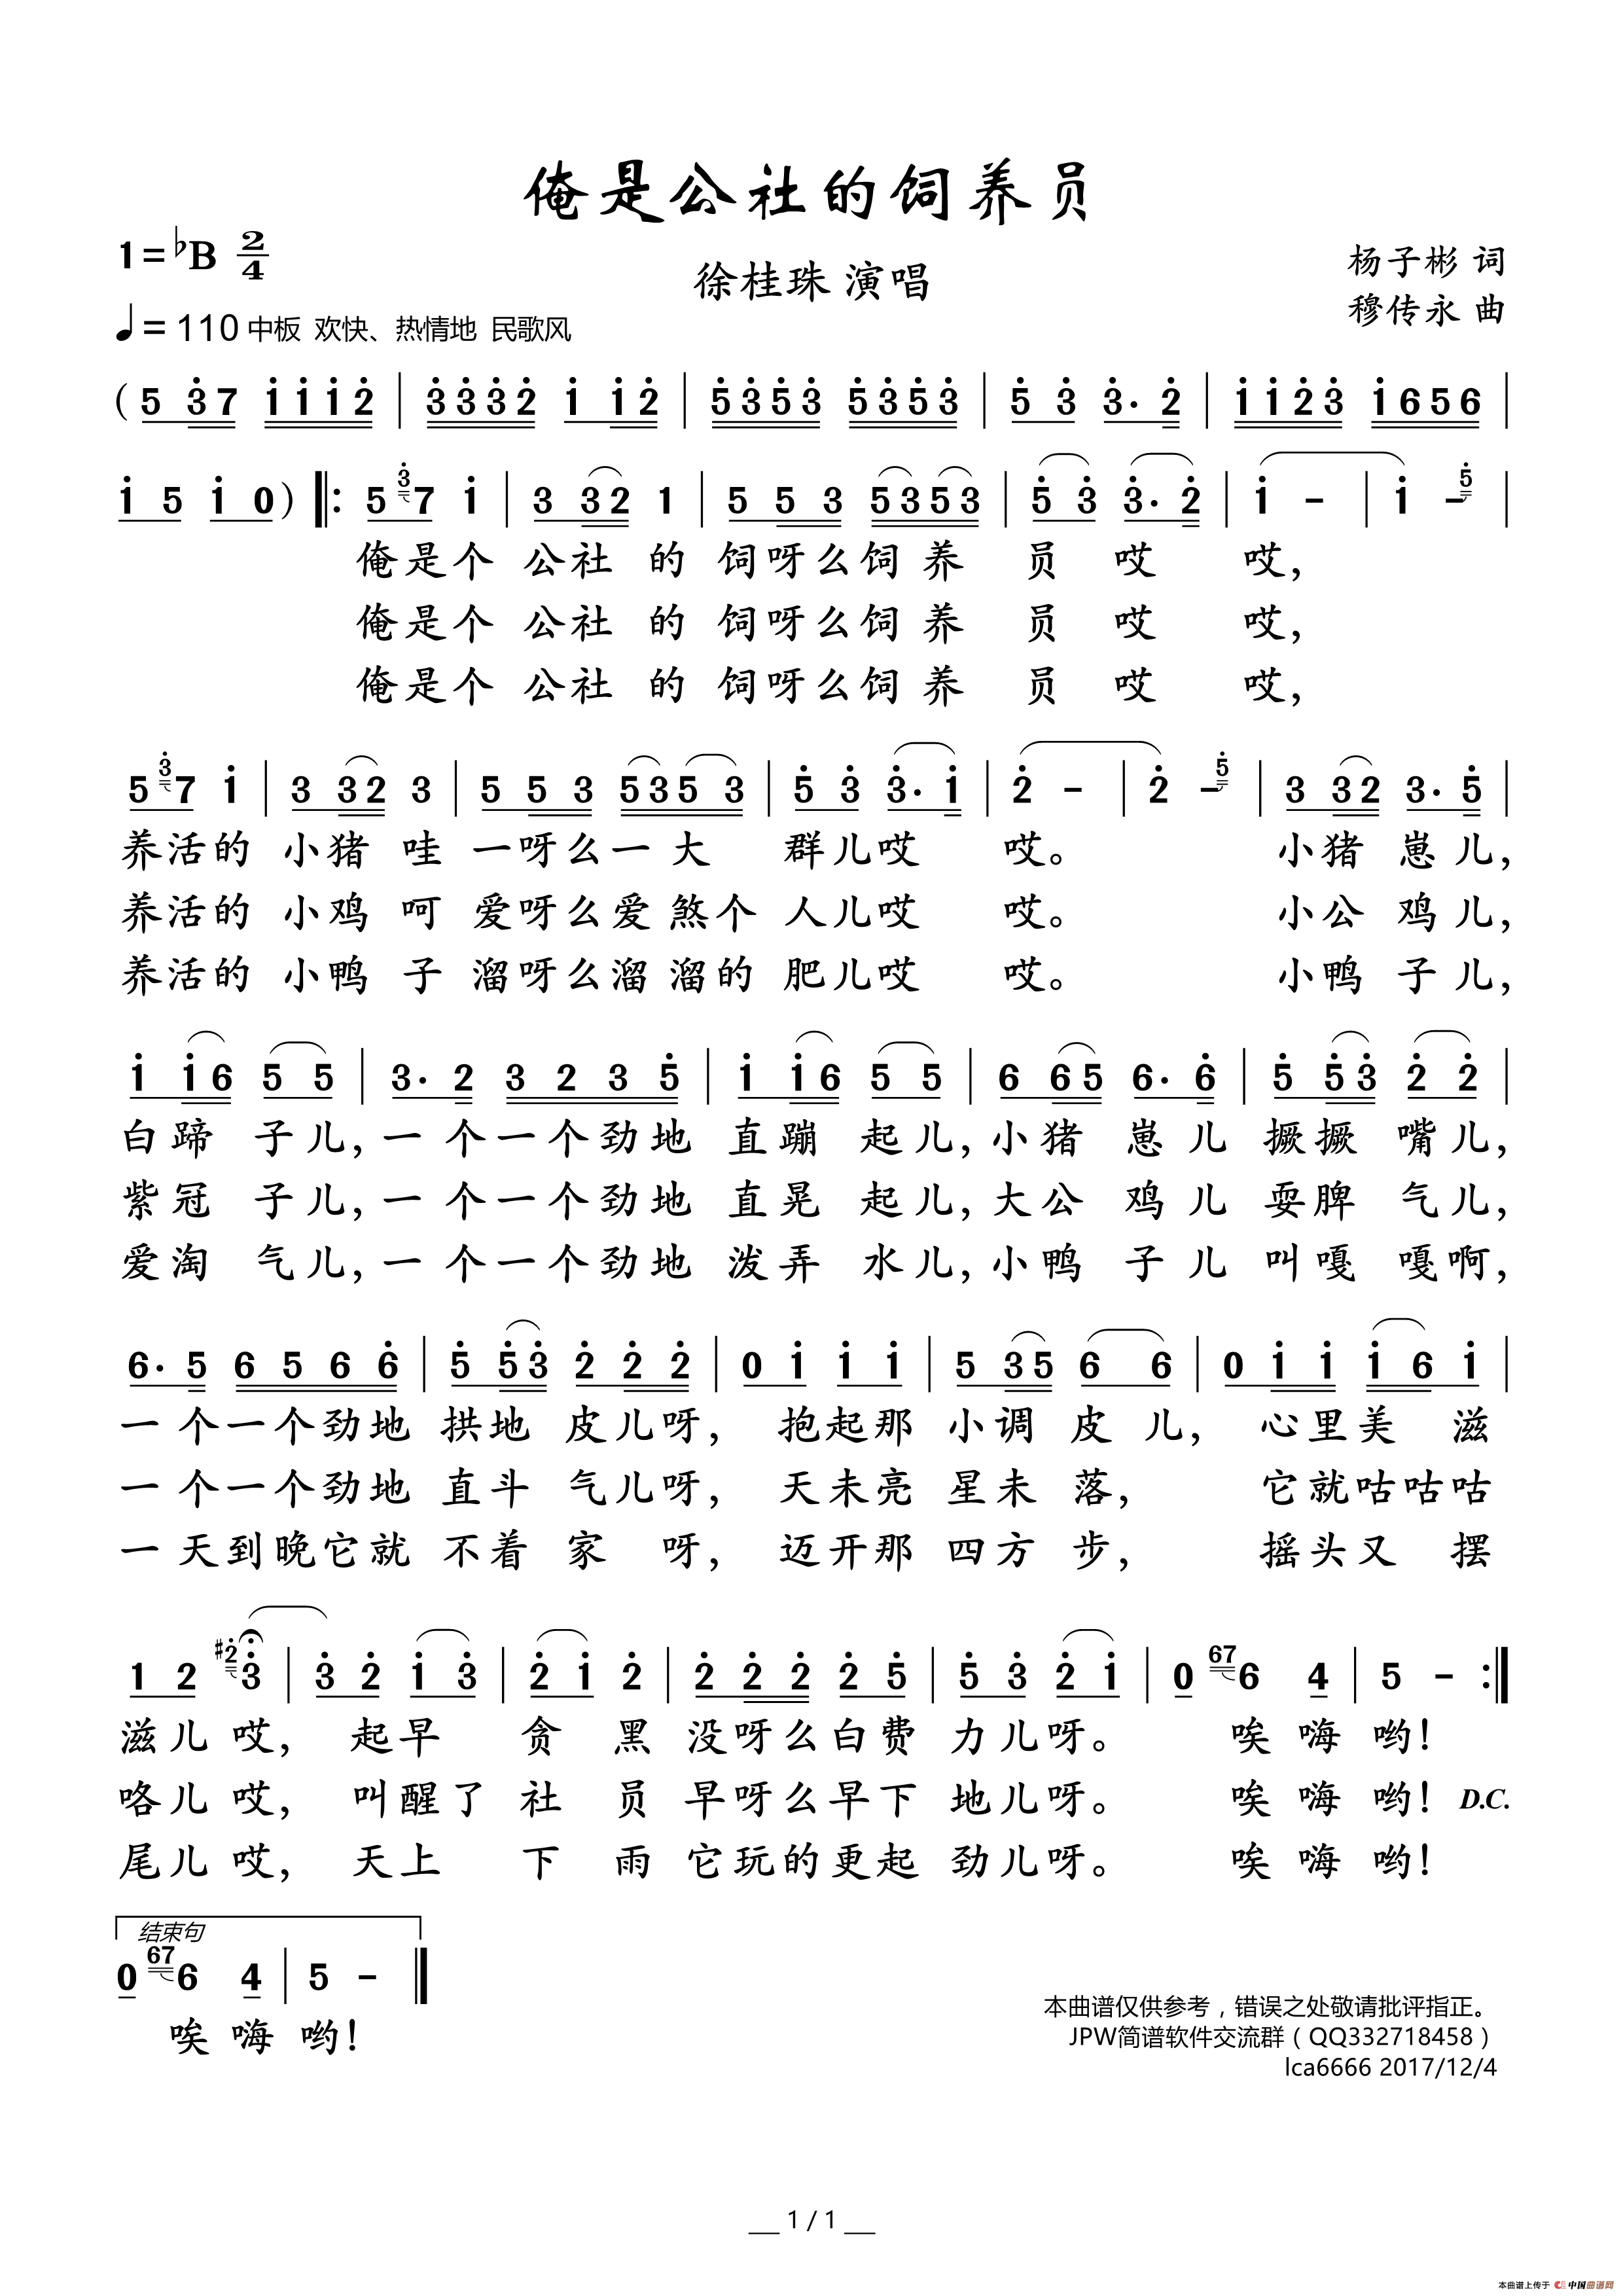 俺是公社的饲养员
1=♭B 2/4
徐桂珠 演唱
杨子彬 词
穆传永 曲
♩= 110 中板 欢快、热情地 民歌风
( 5 3̇ 7 1̇ 1̇ 1̇ 2̇ | 3̇ 3̇ 3̇ 2̇ 1̇ 1̇ 2̇ | 5̇ 3̇ 5̇ 3̇ 5̇ 3̇ 5̇ 3̇ | 5̇ 3̇ 3̇· 2̇ | 1̇ 1̇ 2̇ 3̇ 1̇ 6 5 6 |
1̇ 5 1̇ 0 ) ‖: 5 3̇ 7 1̇ | 3 3 2 1 | 5 5 3 5 3 5 3 | 5̇ 3̇ 3̇· 2̇ | 1̇ - | 1̇ - 5̇ |
俺是个 公社 的 饲呀么饲 养 员 哎 哎，
俺是个 公社 的 饲呀么饲 养 员 哎 哎，
俺是个 公社 的 饲呀么饲 养 员 哎 哎，
5 3̇ 7 1̇ | 3 3 2 3 | 5 5 3 5 3 5 3 | 5̇ 3̇ 3̇· 1̇ | 2̇ - | 2̇ - 5̇ | 3 3 2 3· 5̇ |
养活的 小猪 哇 一呀么一 大 群儿哎 哎。 小猪 崽儿，
养活的 小鸡 呵 爱呀么爱 煞个 人儿哎 哎。 小公 鸡儿，
养活的 小鸭 子 溜呀么溜 溜的 肥儿哎 哎。 小鸭 子儿，
1̇ 1̇ 6 5 5 | 3· 2 3 2 3 5̇ | 1̇ 1̇ 6 5 5 | 6 6 5 6· 6̇ | 5̇ 5̇ 3̇ 2̇ 2̇ |
白蹄 子儿，一 个一个劲地 直蹦 起儿，小猪 崽儿 撅撅 嘴儿，
紫冠 子儿，一 个一个劲地 直晃 起儿，大公 鸡儿 耍脾 气儿，
爱淘 气儿，一 个一个劲地 泼弄 水儿，小鸭 子儿 叫嘎 嘎啊，
6· 5 6 5 6 6̇ | 5̇ 5̇ 3̇ 2̇ 2̇ 2̇ | 0 1̇ 1̇ 1̇ | 5 3 5 6 6 | 0 1̇ 1̇ 1̇ 6 1̇ |
一 个一个劲地 拱地 皮儿呀， 抱起那 小调 皮 儿， 心里美 滋
一 个一个劲地 直斗 气儿呀， 天未亮 星未 落， 它就咕咕咕
一 天到晚它就 不着 家 呀， 迈开那 四方 步， 摇头又 摆
1 2 #2̇ 3̇ | 3̇ 2̇ 1̇ 3̇ | 2̇ 1̇ 2̇ | 2̇ 2̇ 2̇ 2̇ 5̇ | 5̇ 3̇ 2̇ 1̇ | 0 67 6 4 | 5 - :‖
滋儿 哎， 起早 贪 黑 没呀么白费 力儿呀。 唉 嗨 哟！
咯儿 哎， 叫醒了 社 员 早呀么早下 地儿呀。 唉 嗨 哟！ D.C.
尾儿 哎， 天上 下 雨 它玩的更起 劲儿呀。 唉 嗨 哟！
结束句
0 67 6 4 | 5 - ‖
唉 嗨 哟！
本曲谱仅供参考，错误之处敬请批评指正。
JPW简谱软件交流群（QQ332718458）
lca6666 2017/12/4
1 / 1
本曲谱上传于 中国曲谱网